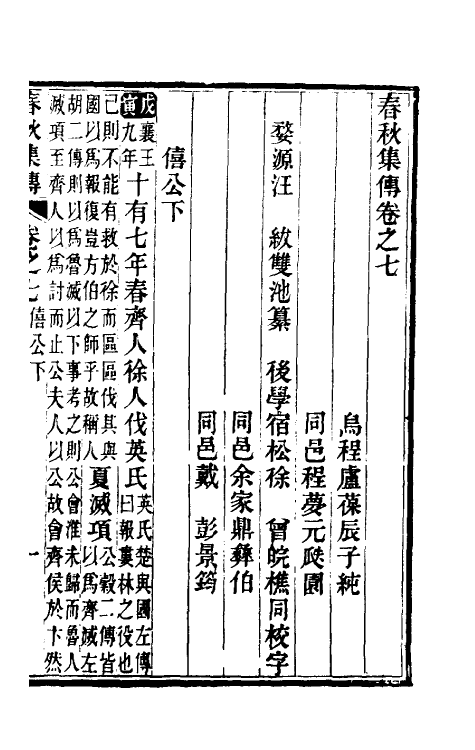 春秋集傳卷之七
烏程盧葆辰子純
同邑程夢元園
婺源汪 紱雙池纂 後學宿松徐 曾皖樵同校字
同邑余家鼎彝伯
同邑戴 彭景筠
僖公下
戊寅襄王九年十有七年春齊人徐人伐英氏英氏楚與國左傳曰報婁林之役也
已則不能有救於徐而區區伐其與國以爲報復豈方伯之師乎故稱人夏滅項公穀二傳皆以爲齊滅左
胡二傳則以爲魯滅以下事考之則公會淮未歸而魯人
滅項至齊人以爲討而止公夫人以公故會齊侯於卞然
春秋集傳 卷之七 僖公下 一